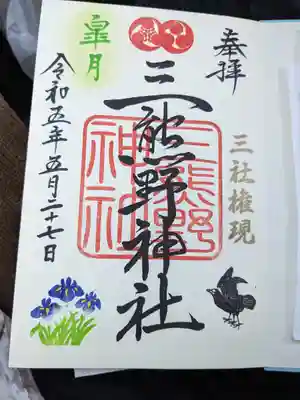 奉拝
三社権現
三熊野神社
三熊野
神社
皐月
令和五年五月二十七日